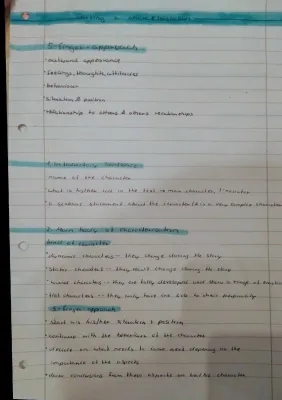 5-finger-approach
• outward appearance
• feelings, thoughts, attitudes
• behaviour
• situation & position
• relationship to others & others relationships
1. Introductory sentence
name of the character
• what is his/her role in the text → main character,
• a general statement about the character (is a very complex character
2. Main body of characterization
kind of character
- dynamic characters → they change during the story
- static characters → they don't change during the story
- round characters → they are fully developed and show a range of
- flat characters → they only have one side to their personality
5-finger approach
• start his/her situation & position
• continue with the behaviour of the character
• decide on what needs to come next depending on the
importance of the aspects
• draw conclusions from these aspects on his/her character